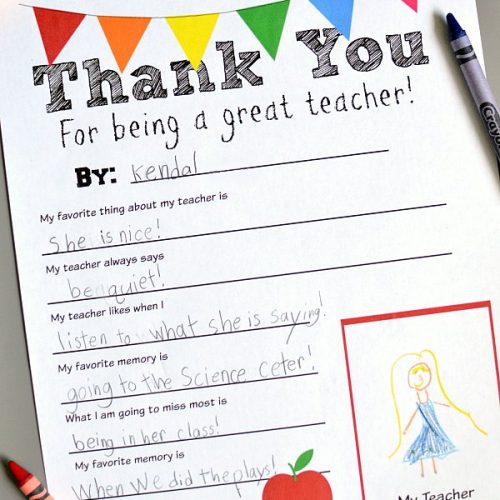 Thank You
For being a great teacher!
By: Kendal
My favorite thing about my teacher is
She is nice!
My teacher always says
be quiet!
My teacher likes when I
listen to what she is saying!
My favorite memory is
going to the Science Ceter!
What I am going to miss most is
being in her class!
My favorite memory is
When We did the plays!
My Teacher
Crayola